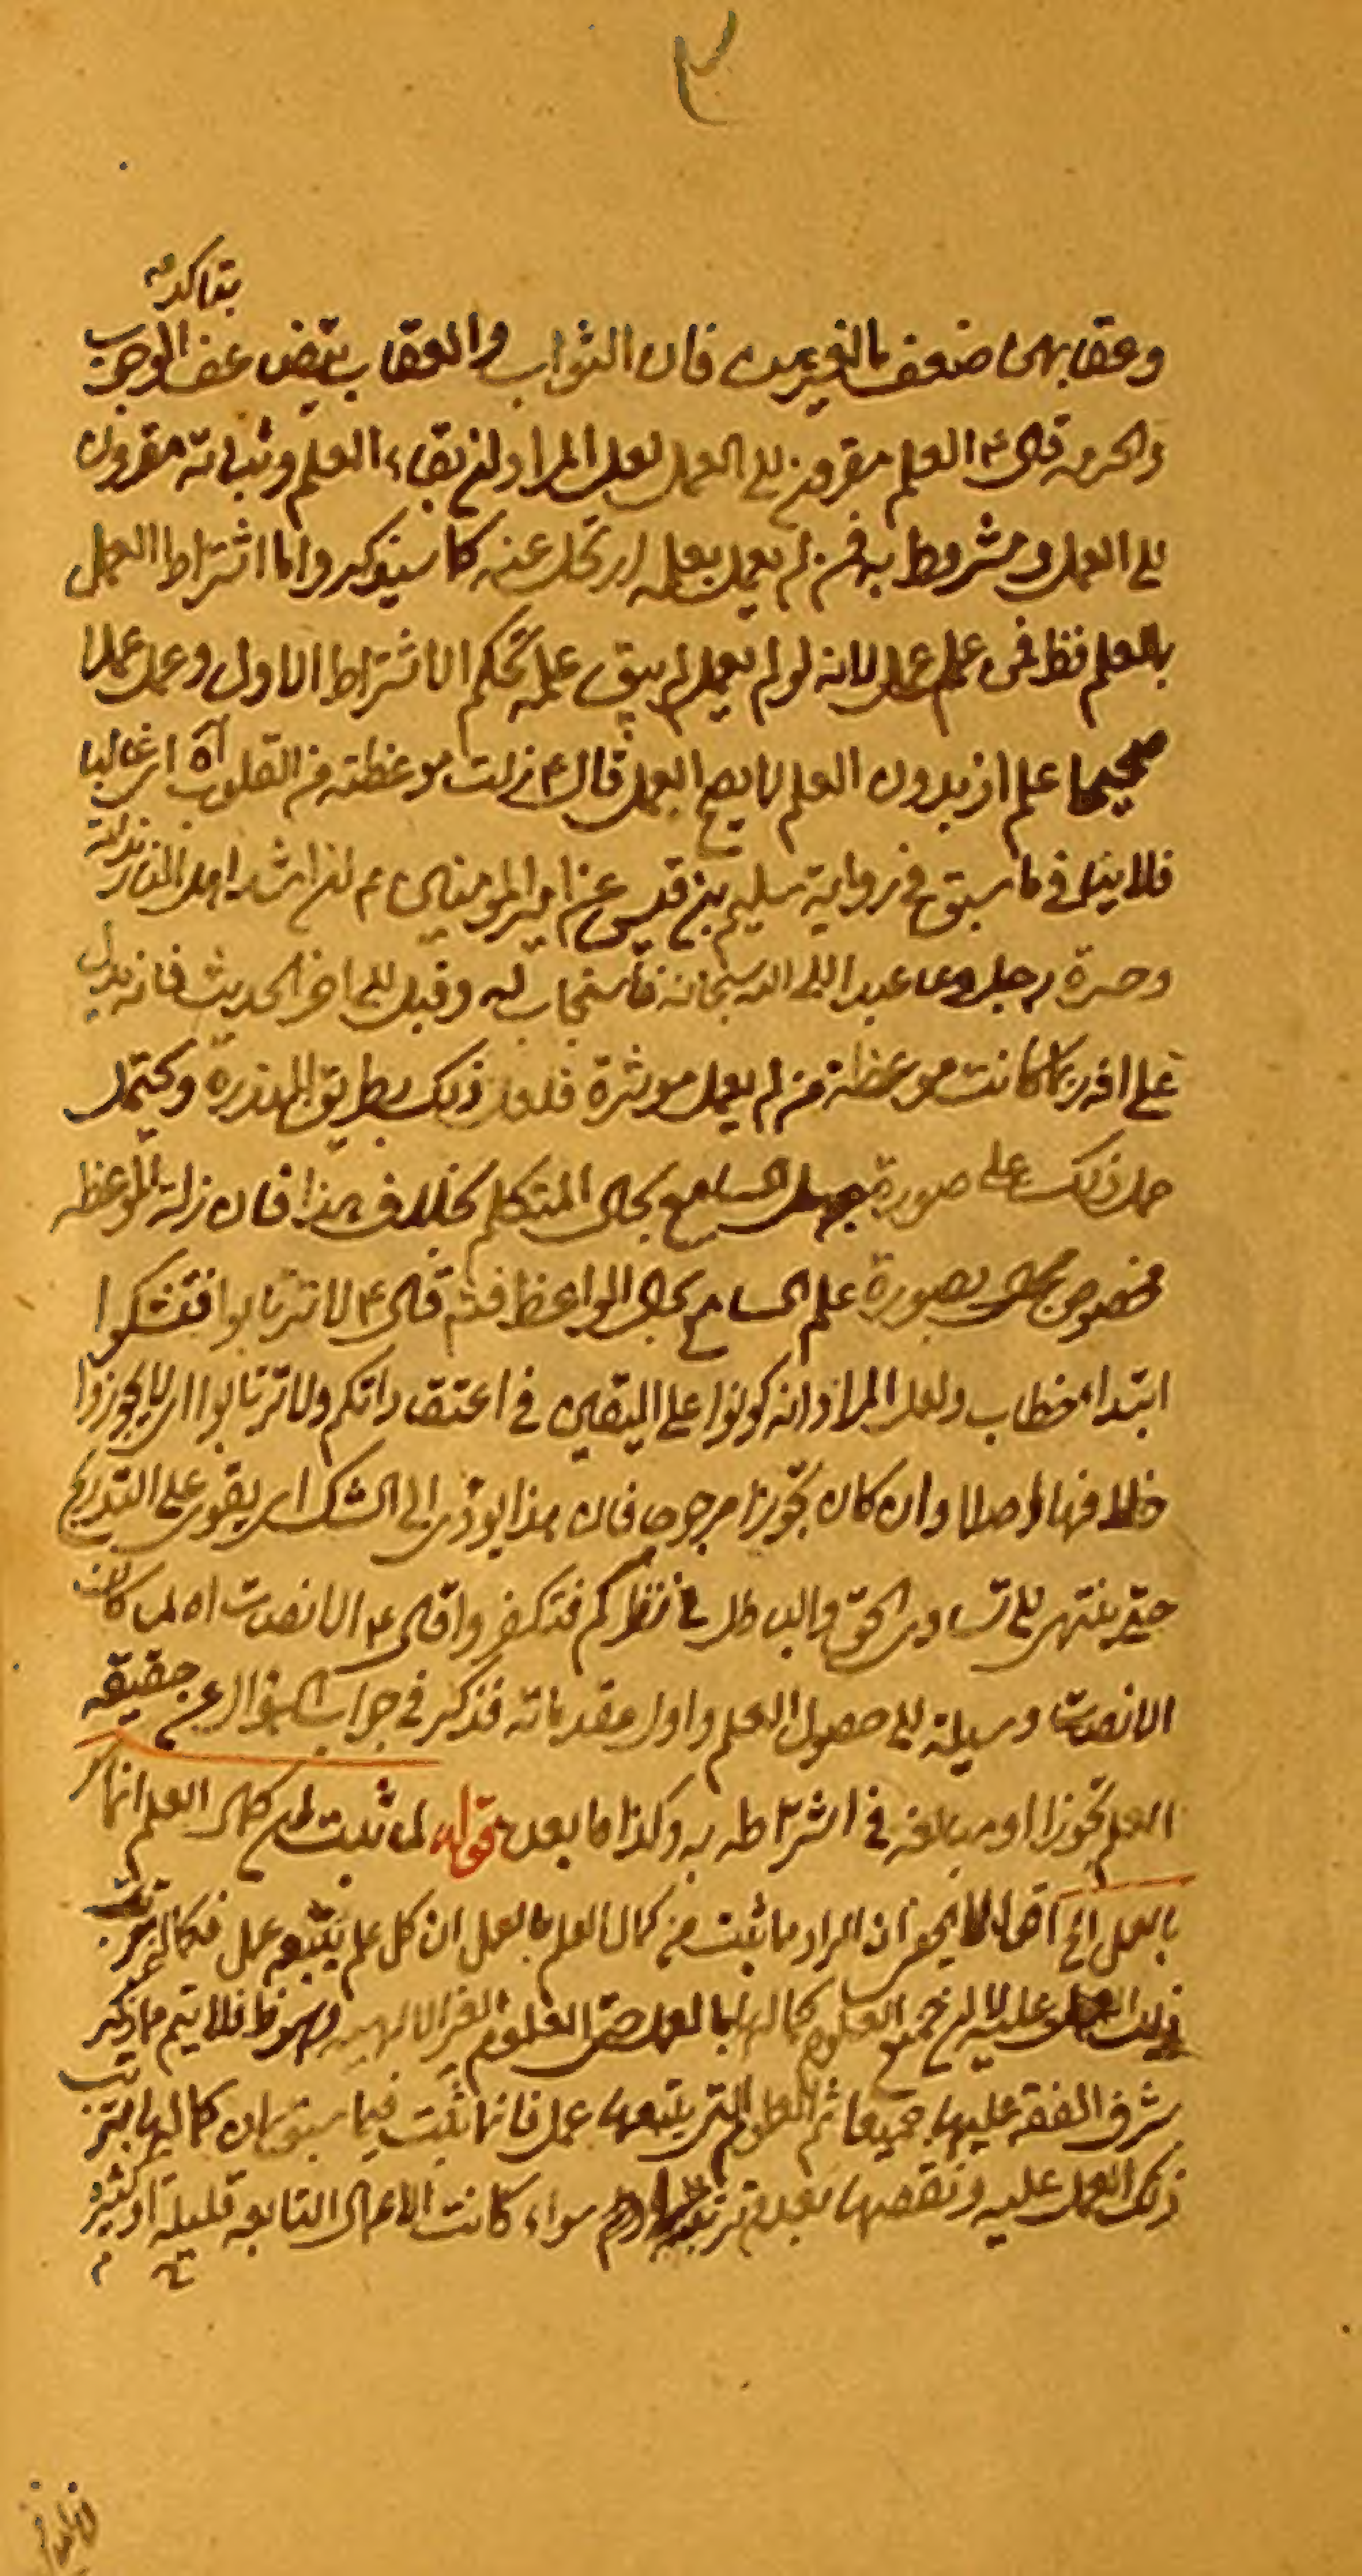 ٣
بتأكد
وعقابهن ضعف الغيرهن فان الثواب والعقاب يتضاعف الوجوب
والحرمة قال ع العلم مقرون الى العمل لعل المراد ان بقاء العلم وثباته مقرون
الى العمل ومشروط به فمن لم يعمل بعلمه ارتحل عنه كما سيذكره واما اشتراط العمل
بالعلم فظ فمن علم عمل لانه لو لم يعمل لم يبق علمه بحكم الاشتراط الاول وعمل عملا
صحيحا علم اذ بدون العلم لا يصح العمل قال ع زلت موعظته من القلوب اه اى غالبا
فلا ينافى ما سبق فى رواية سليم بن قيس عن امير المؤمنين ع ان اشد اهل النار ندامة
وحسرة رجل دعا عبدا الى الله سبحانه فاستجاب له وقبل الى اخر الحديث فانه يدل
على انه ربما كانت موعظة من لم يعمل مؤثرة فلعل ذلك بطريق الندرة ويحتمل
حمل ذلك على صورة جهل السامع بحال المتكلم بخلاف هذا فان زلة الموعظة
مخصوص بصورة علم السامع بحال الواعظ فتم قال ع لا ترتابوا فتشكوا
ابتداء خطاب ولعل المراد انه كونوا على اليقين فى اعتقاداتكم ولا ترتابوا اى لا تجوزوا
خلافها اصلا وان كان تجويزا مرجوحا فان هذا يؤدى الى الشك اى يقوى على التدريج
حتى ينتهى الى تساوى الحق والباطل فى نظركم فتكفروا قال ع الانصات اه لما كانت
الانصات وسيلة الى حصول العلم واول مقدماته فذكر فى جواب السؤال عن حقيقة
العلم تجوزا او مبالغة فى اشتراطه به وكذا ما بعده قوله لما ثبت ان كمال العلم انما
بالعمل الخ اقول لا يخفى ان المراد ما ثبت من كمال العلم بالعمل ان كل علم يتبعه عمل فكماله بترتب
ذلك العمل عليه لا ان جميع العلوم كمالها بالعمل حتى العلوم الغير الالهية وهو ظ فلا يتم ما ذكر
شرف الفقه عليها جميعا ثم العلوم التى يتبعها عمل فانما ثبت فيما سبق ان كمالها بترتب
ذلك العمل عليه ونقصها بعدم ترتبه سواء كانت الاعمال التابعة قليلة او كثيرة